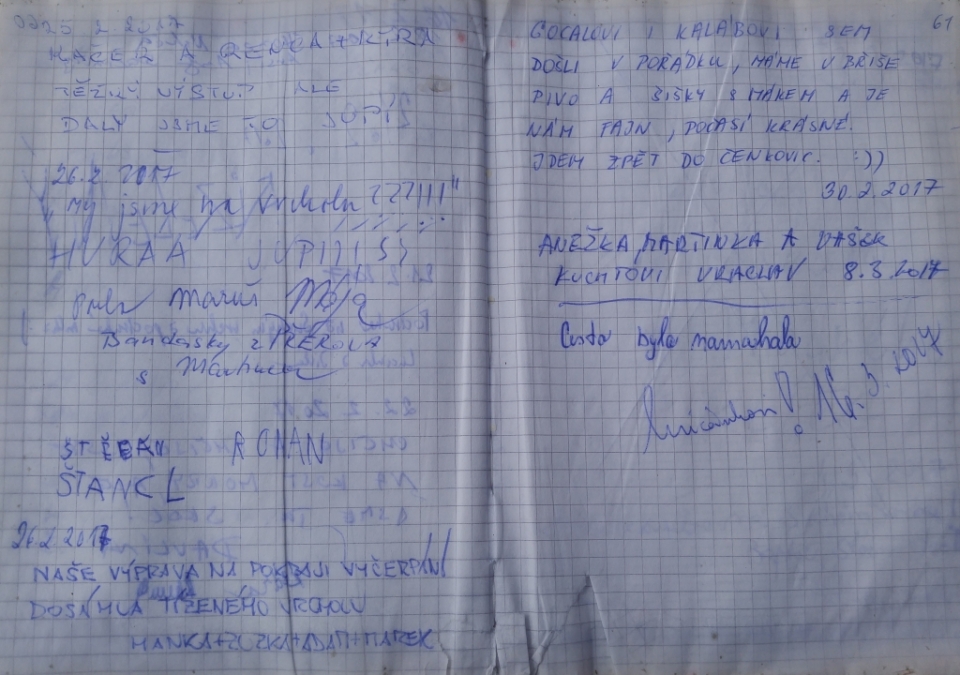 25 2. 2017
A RENČA + KÍRA
TĚŽKÝ VÝSTUP ALE
DALY JSME TO JUPÍŠ
26.2 2017
"my jsme na vrcholu
HURAA JUPIIII
Maruš Mája
Bandasky z PŘEROVA
s
ŠTĚPÁN A ONAN
ŠTANCL
26.2 2017
NAŠE VÝPRAVA NA POKRAJI VYČERPÁNÍ
DOSÁHLA TÍŽENÉHO VRCHOLU
HANKA+ZUZKA+ADAM+MAREK
61
GOCALOVI I KALÁBOVI SEM
DOŠLI V POŘÁDKU, MÁME V BŘIŠE
PIVO A ŠIŠKY S MÁKEM A JE
NÁM FAJN, POČASÍ KRÁSNÉ.
JDEM ZPĚT DO ČENKOVIC. :))
30.2.2017
ANEŽKA, MARTINKA A VAŠEK
KUCHTOVI VRACLAV 8.3.2017
Cesta byla namahala
16.3.2017